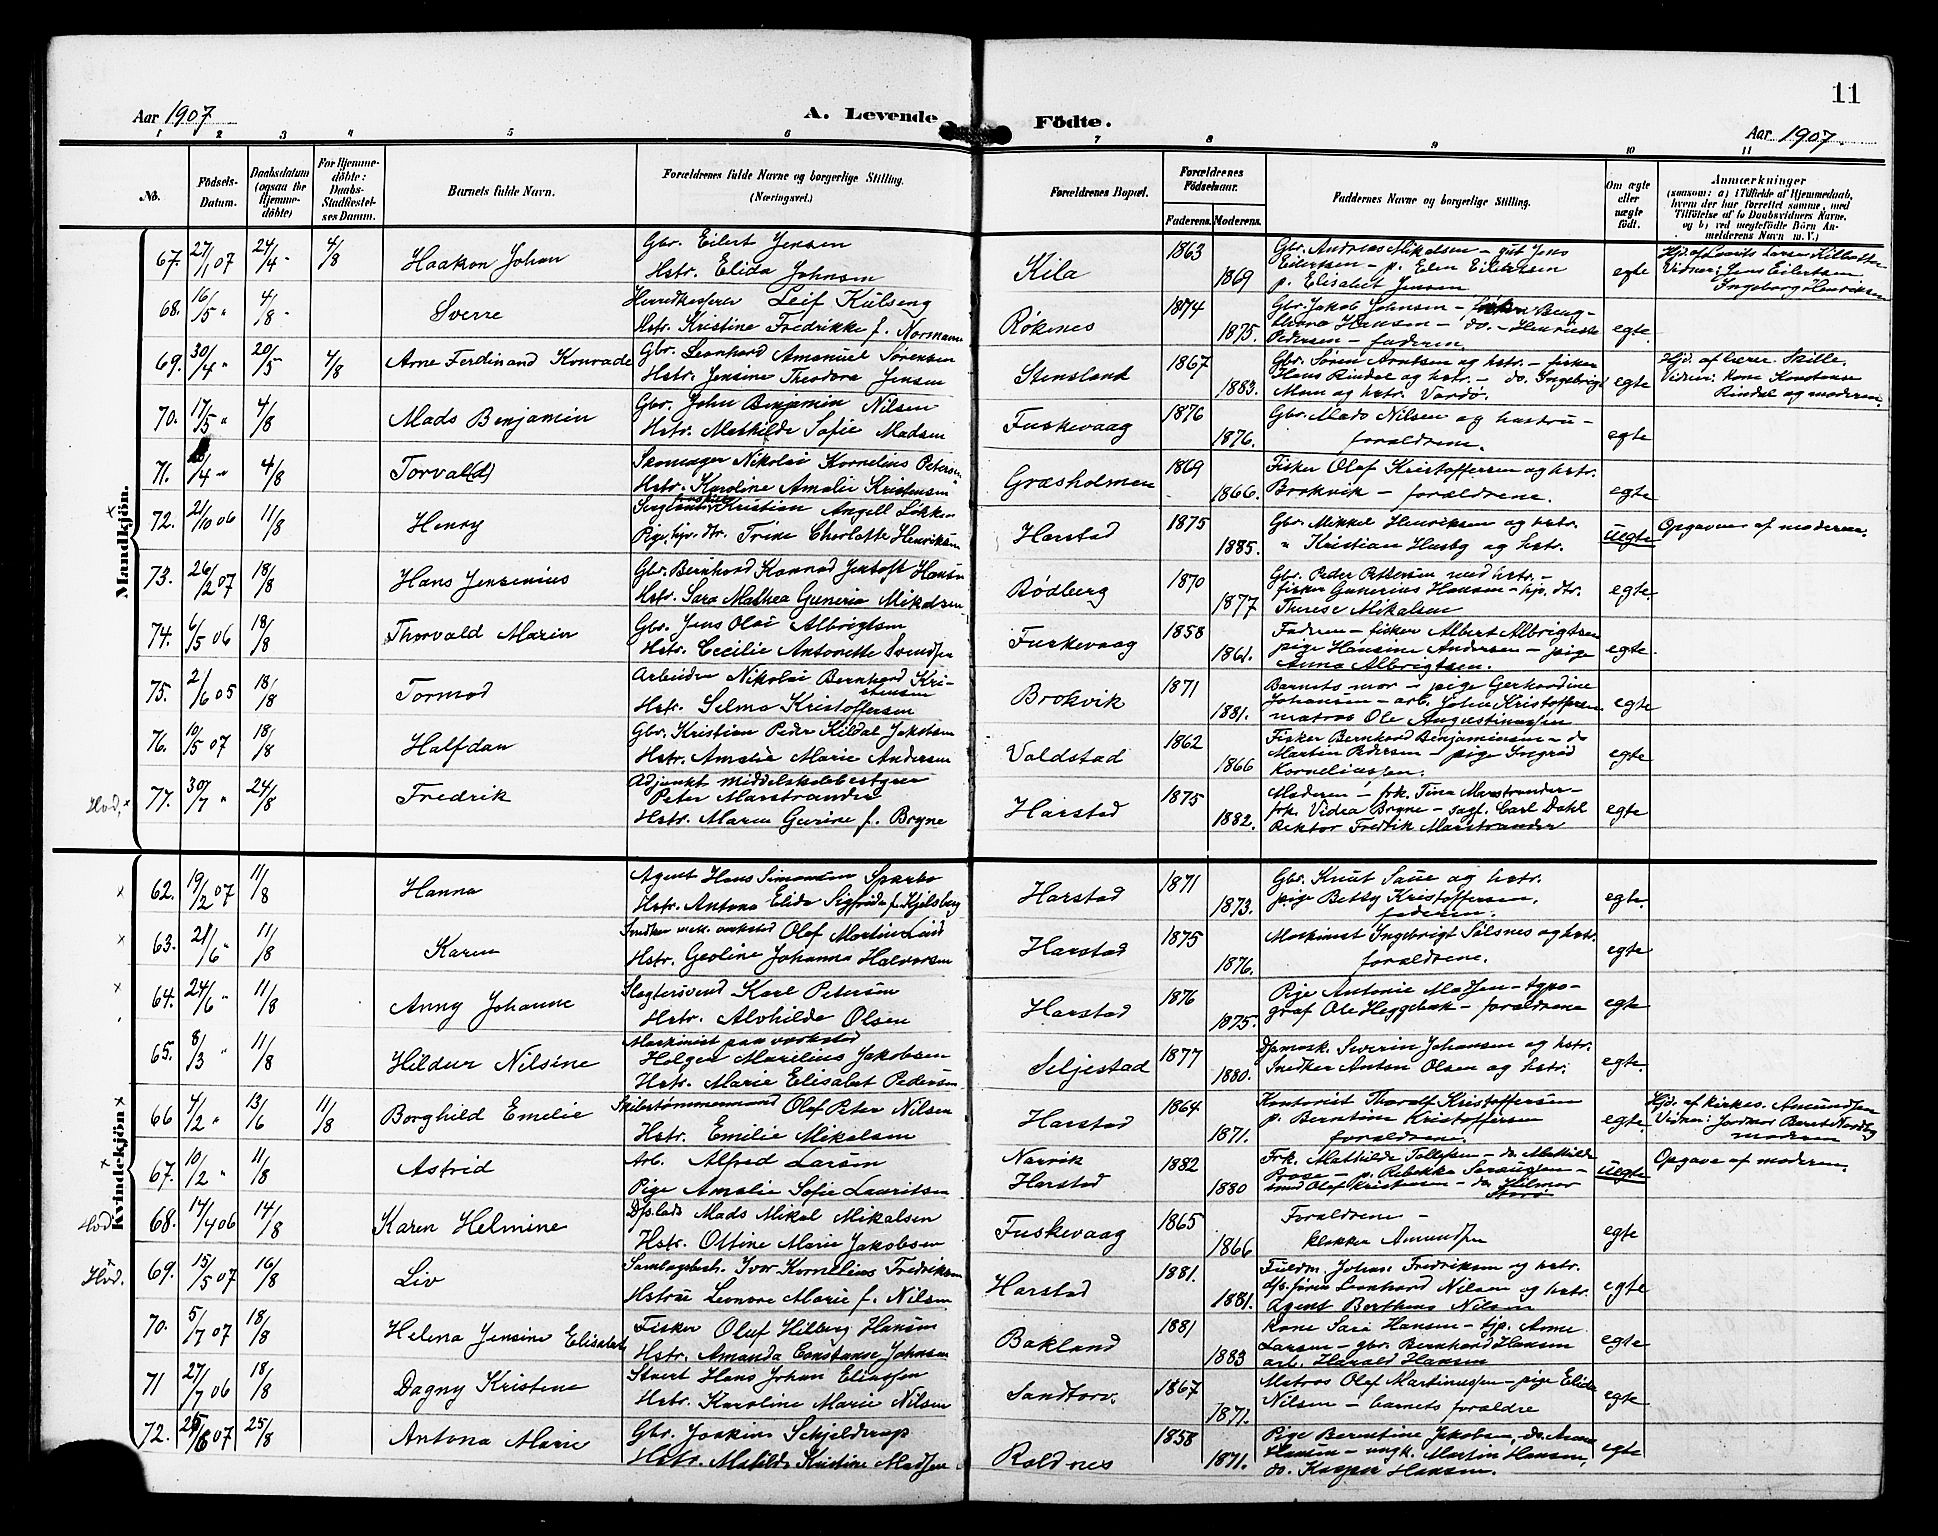 11
Aar 1907
A. Levende Födte.
Aar 1907.
1 2 3 4 5 6 7 8 9 10 11
No.
Födsels-Datum.
Daabsdatum (ogsaa for Hjemmedöbte)
For Hjemmedöbte: Daabs-Stadfæstelses Datum.
Barnets fulde Navn.
Forældrenes fulde Navne og borgerlige Stilling. (Næringsvei.)
Forældrenes Bopæl.
Forældrenes Födselsaar. Faderens. Moderens.
Faddernes Navne og borgerlige Stilling.
Om ægte eller uægte födt.
Anmærkninger (saasom: a) i Tilfælde af Hjemmedaab, hvem der har forrettet samme, med Tilföielse af to Daabsvidners Navne, og b) ved uægtefödte Börn Anmelderens Navn m. V.)
Mandkjön.
67. 27/1 07 24/4 - 4/8 Haakon Johan
Gbr. Eilert Jensen
Hstr. Elida Johnsen
Kila 1863 1869
Gbr. Andreas Mikalsen - gut Jens
Eilertsen - p. Elen Eilertsen
p. Elisabet Jensen
egte
Hjd. af Laurits Larsen Kilbotten
Vidner: Jens Eilertsen
Ingeborg Henriksen
68. 16/5 " 4/8 - Sverre
Herredkasserer Leif Kulseng
Hstr. Kristine Fredrikke f. Normann
Røkenes 1874 1875.
Gbr. Jakob Johnsen -
Hansen - do. - Henriette
Pedersen - faderen.
egte.
69. 30/4 " 20/5 4/8 Arne Ferdinand Konrade
Gbr. Leonhard Amanuel Sørensen
Hstr. Jensine Theodora Jensen
Stensland 1867 1883.
Gbr. Søren Arntsen og hstr. - fisker
Hans Rindal og hstr. - do. Ingebrigt
og hstr. Vardø.
egte
Hjd. af lærer Skille.
Vidner: Kone Konstanse
Rindal og moderen.
70. 17/5 " 4/8 Mads Benjamin
Gbr. John Benjamin Nilsen
Hstr. Mathilde Sofie Madsen
Fuskevaag 1876 1876.
Gbr. Mads Nilsen og hustru -
forældrene.
egte
71. /4 " 4/8 Torval(d)
Skomager Nikolai Kornelius Petersen
Hstr. Karoline Amalie Kristensen
Græsholmen 1869 1866.
Fisker Olaf Kristoffersen og hstr.
Brokvik - forældrene.
egte
72. 21/10 06 11/8 Henry
Kristian Angell Løkken
Pige, hjv. dtr. Trine Charlotte Henriksen
Harstad 1875 1885.
Gbr. Mikkel Henriksen og hstr.
" Kristian Husby og hstr.
uegte
Opgaven af moderen.
73. 26/2 07 18/8 Hans Jensenius
Gbr. Bernhard Konrad Jentoft Hansen
Hstr. Sara Mathea Guneria Mikalsen
Rødberg 1870 1877
Gbr. Peder Pettersen med hstr. -
fisker Gunerius Hansen - hjv. dtr.
Therese Mikalsen
egte.
74. 6/5 06 18/8 Thorvald Marin
Gbr. Jens Olai Albrigtsen
Hstr. Cecilie Antonette Svendsen
Fuskevaag 1858 1861.
Faderen - fisker Albert Albrigtsen
pige Hansine Andersen - pige
Anna Albrigtsen.
egte.
75. 2/6 05 18/8 Tormod
Arbeider Nikolai Bernhard Kristensen
Hstr. Selma Kristoffersen
Brokvik 1871 1881.
Barnets mor - pige Gerhardine
Johansen - arb. Johan Kristoffersen
matros Ole Augustinussen
egte
76. 10/5 07 18/8 Halfdan
Gbr. Kristian Peder Kildal Jakobsen
Hstr. Amalie Marie Andersen
Voldstad 1862 1866
Fisker Bernhard Benjaminsen - do
Martin Pedersen - pige Ingrid
Korneliussen.
egte
Hvd. 77. 30/7 " 24/8 Fredrik
Adjunkt middelskolebestyrer
Peter Marstrander
Hstr. Maren Gurine f. Bryne
Harstad 1875 1882.
Moderen - frk. Tina Marstrander -
frk. Videa Bryne - sagf. Carl Dahl
Rektor Fredrik Marstrander
egte
Kvindekjön
62. 19/2 07 11/8 Hanna
Agent Hans Simonsen Sparbo
Hstr. Antona Elida Sigfrida f. Kjelsberg
Harstad 1871 1873.
Gbr. Knut Saue og hstr.
pige Betsy Kristoffersen.
faderen.
egte.
63. 21/6 " 11/8 Karen
Snedker mek. verksted Olaf Martin Lind
Hstr. Geoline Johanna Halvorsen
Harstad 1875 1876.
Maskinist Ingebrigt Sølsnes og hstr.
forældrene.
egte
64. 24/6 " 11/8 Anny Johanne
Slagtersvend Karl Petersen
Hstr. Alvhilde Olsen
Harstad 1876 1875.
Pige Antonie Madsen - typo-
graf Ole Heggebak - forældrene
egte
65. 8/3 " 11/8 Hildur Nilsine
Maskinist paa verksted
Holger Marelius Jakobsen
Hstr. Marie Elisabet Pedersen
Seljestad 1877 1880.
Dpmask. Severin Johansen og hstr.
Snedker Anton Olsen og hstr.
egte.
66 4/2 " 13/6 11/8 Borghild Emelie
Skibstømmermand Olaf Peter Nilsen
Hstr. Emilie Mikalsen
Harstad 1864 1871.
Kontorist Tharalf Kristoffersen
p. Berntine Kristoffersen
forældrene.
egte.
Hjd. af kirkes. Amundsen
Vidner: Jordmor Nordby
moderen
67. 10/2 " 11/8 Astrid
Arb. Alfred Larsen
Pige Amalie Sofie Lauritsen
Narvik
Harstad 1882 1880
Frk. Mathilde Tollefsen - do. Mathilde
p. Rebekka -
Olaf Kristensen - do. Hilmar
Storø
uegte
Opgave af moderen.
Hvd 68. 14/4 06 14/8 Karen Helmine
Dpslods Mads Mikal Mikalsen
Hstr. Ottine Marie Jakobsen
Fuskevaag 1865 1866
Forældrene -
klokker Amundsen
egte
Hvd. 69. 15/5 07 16/8 Liv
Samlagsbest. Ivar Kornelius Fredriksen
Hstrue Leonore Marie f. Nilsen
Harstad 1881. 1881.
Fuldm. Johan Fredriksen og hstr.
dpsfører Leonhard Nilsen og hstr.
Agent Berthens Nilsen
egte
70. 5/7 07 18/8 Helena Jensine Elisabeth
Fisker Oluf Hilberg Hansen
Hstr. Amanda Constanse Johnsen
Bakland 1881 1883
Kone Sara Hansen - tjp. Anne
Larsen - gbr. Bernhard Hansen
arb. Harald Hansen
egte
71 27/7 06 18/8 Dagny Kristene
Stuert Hans Johan Eliassen
Hstr. Karoline Marie Nilsen
Sandtorv. 1867 1871.
Matros Olaf Martinussen - pige Elida
Nilsen - barnets forældre
egte
72. 25/6 07 25/8 Antona Marie
Gbr. Joakim Schjelderup
Hstr. Matilde Kristine Madsen
Roldnes 1858 1871.
Pige Berntine Jakobsen, do. Anna
Hansen - ungk. Martin Hansen,
do. Kasper Hansen.
egte